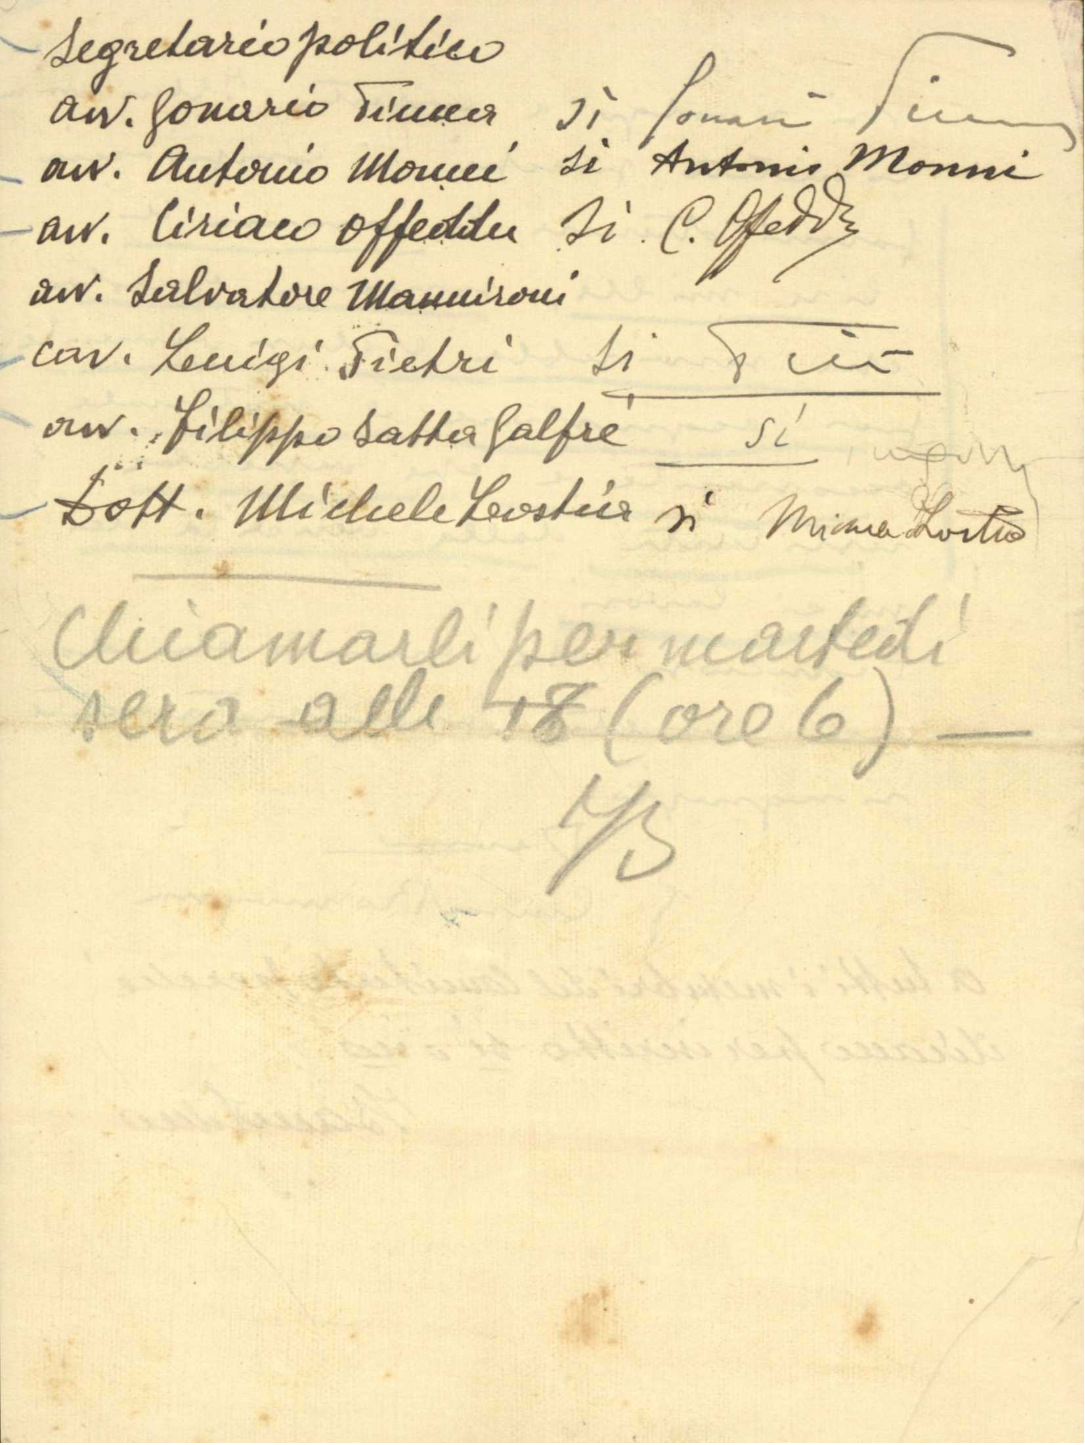 Segretario politico
avv. Gonario Pinna si Gonario Pinna
avv. Antonio Monni si Antonio Monni
avv. Ciriaco Offeddu si C. Offeddu
avv. Salvatore Mannironi
cav. Luigi Pietri si
avv. Filippo Satta Galfré si
Dott. Michele Lostia si
Chiamarli per martedì
sera alle 18 (ore 6) —